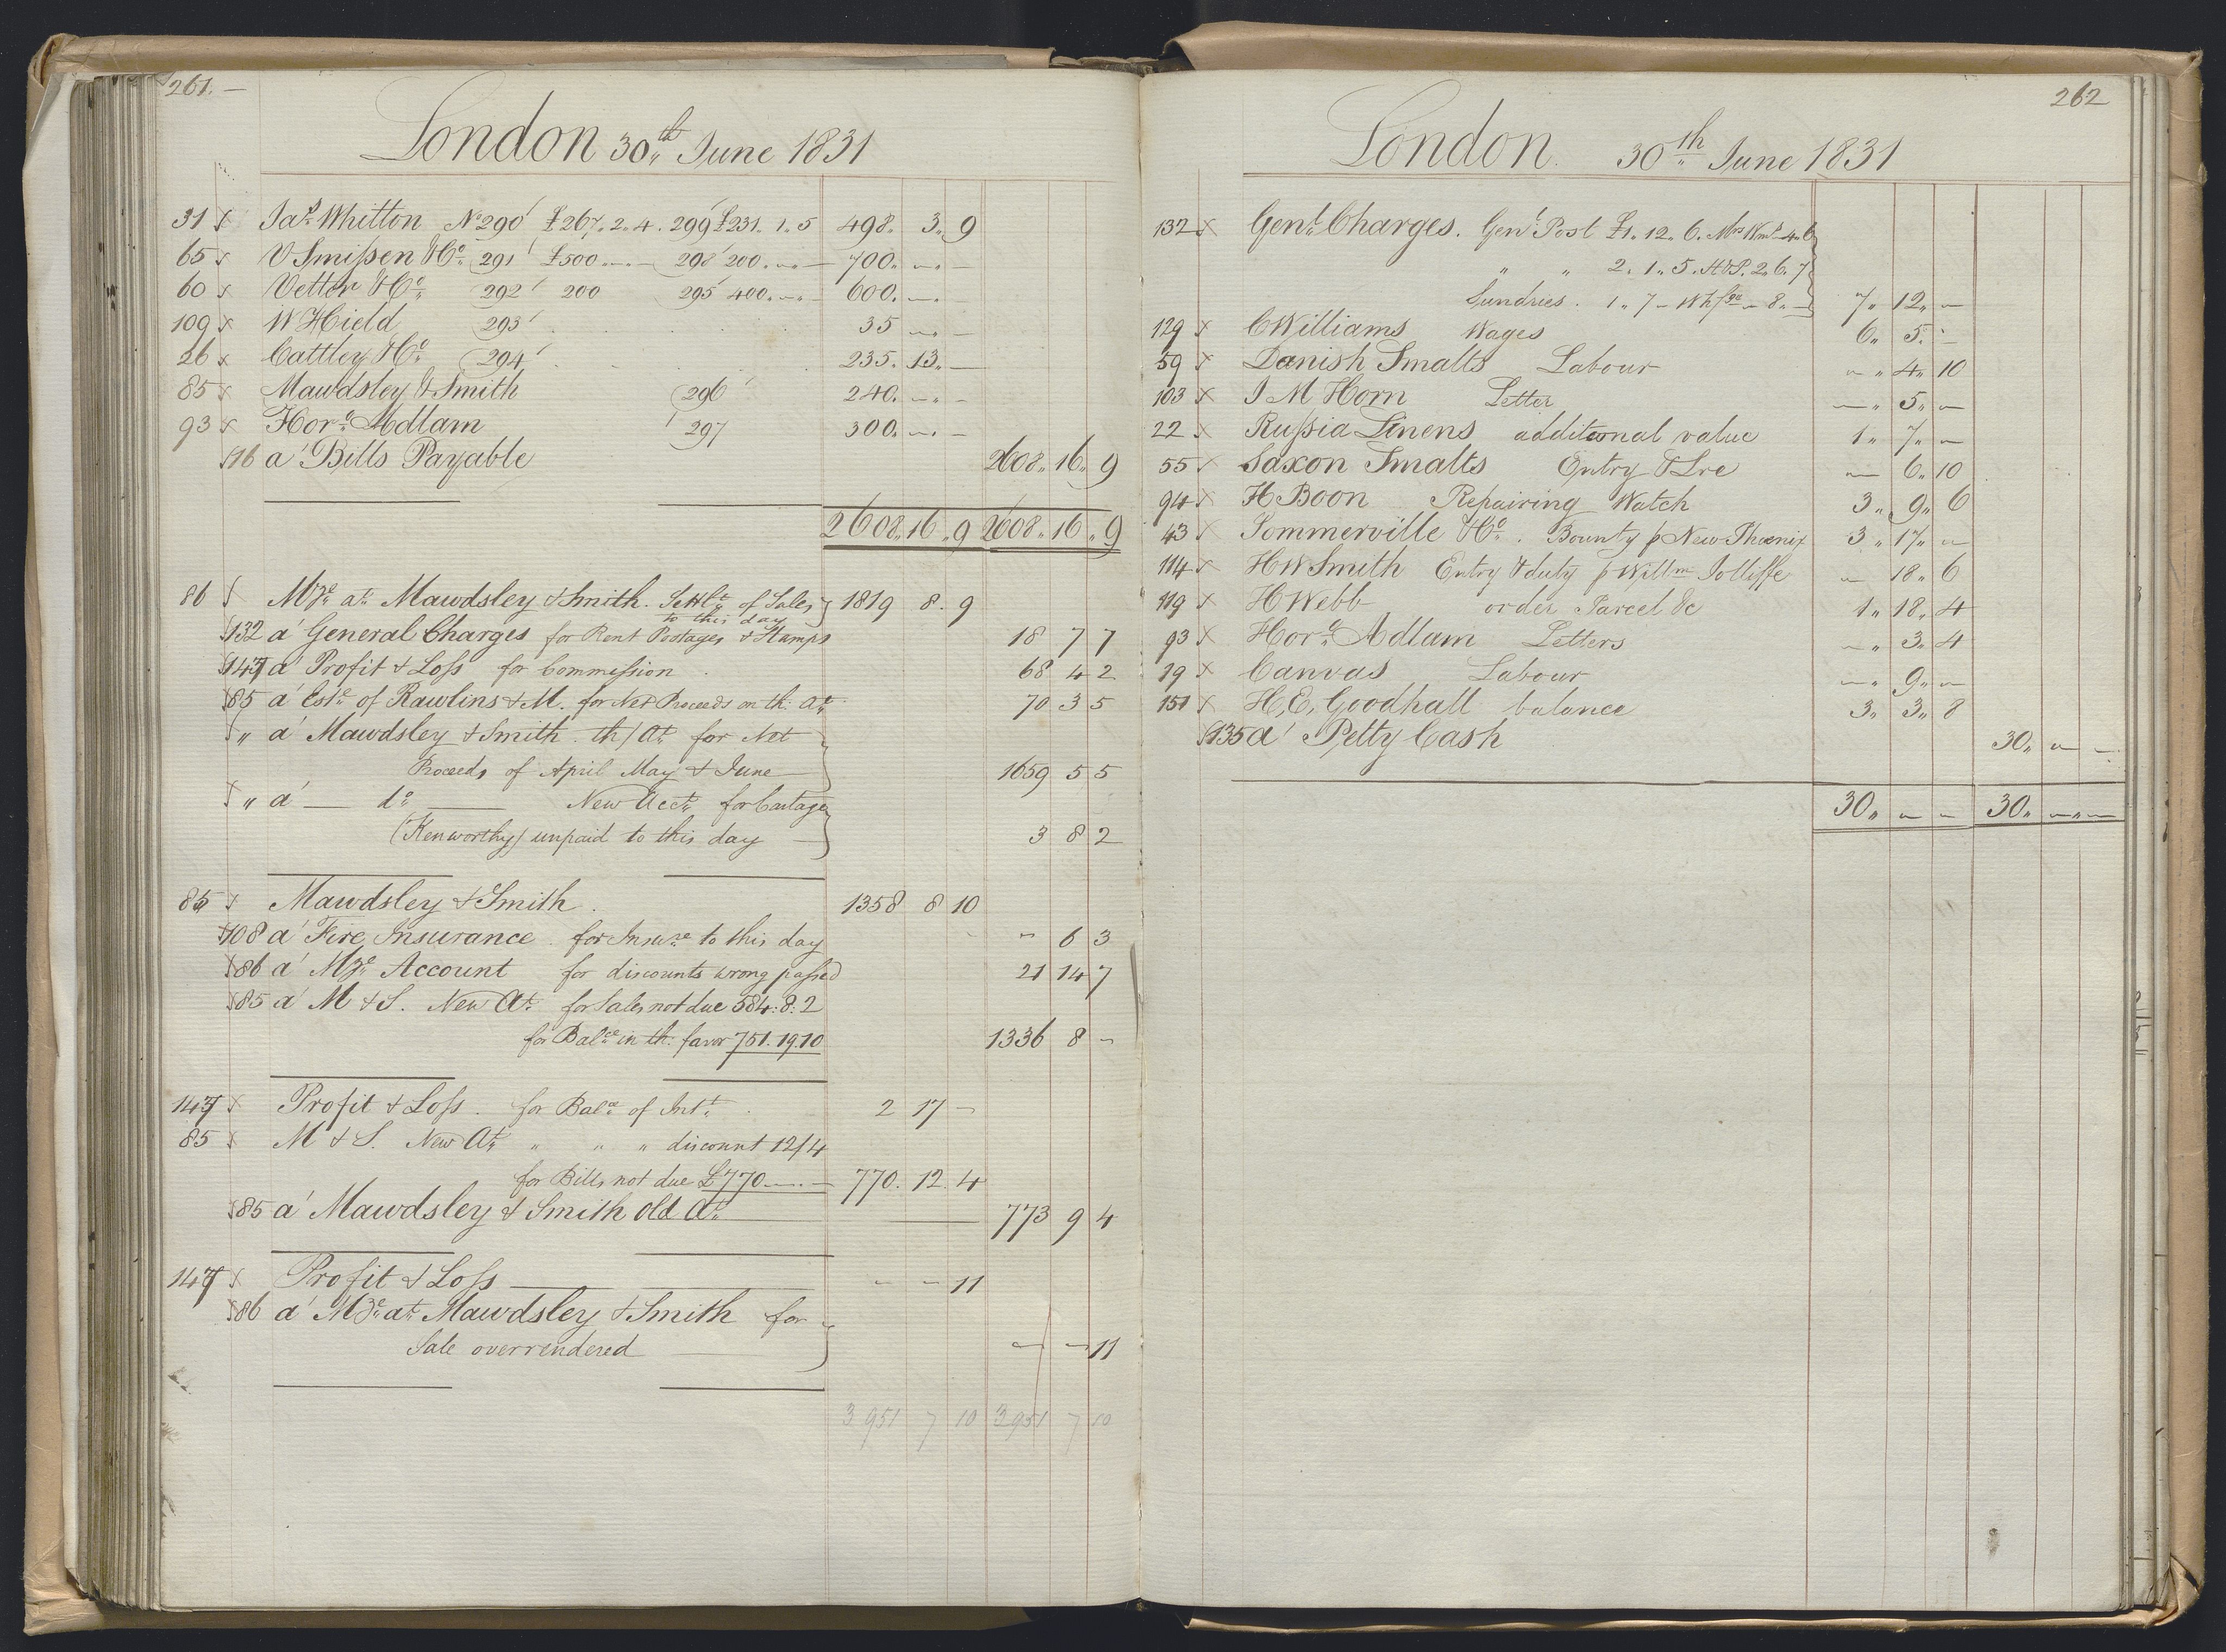 261.
London 30th June 1831
31 Jas. Whitton No 290 £267. 2. 4. 299 £231. 1. 5 498. 3. 9
65 V Smissen & Co. 291 £500 298 200 700
60 Vetter & Co. 292 200 295 400 600
109 W Hield 293 35
26 Cattley & Co. 294 235. 13. —
85 Mawdsley & Smith 296 240
93 Horo. Adlam 297 300
116 a Bills Payable 2608. 16. 9
2608. 16. 9 2608. 16. 9
86 Mze. at. Mawdsley & Smith. Settlt. of Sales 1819 8. 9
to this day
132 a General Charges for Rent Postages & Stamps 18 7 7
147 a Profit & Loss for Commission 68 4 2
85 a Este. of Rawlins & M. for Net Proceeds on th: at. 70 3 5
" a Mawdsley & Smith. th/ at. for Net
Proceeds of April May & June 1659 5 5
" a — do. — New Acct. for Cartage
(Kenworthy) unpaid to this day 3 8 2
85 Mawdsley & Smith. 1358 8 10
108 a Fire Insurance. for Insure. to this day 6 3
86 a Mze. Account for discounts wrong passed 21 14 7
85 a M & S. New at. for Sales not due 584: 8: 2
for Balce. in th. favor 751. 19. 10 1336 8 —
147 Profit & Loss. for Balce. of Intt. 2 17 —
85 M & S. New at. " " " discount 12/4
for Bills not due £770 — 770. 12. 4
85 a Mawdsley & Smith old at. 773 9 4
147 Profit & Loss 11
86 a Mze. at. Mawdsley & Smith for
Sale overrendered 11
3951 7 10 3951 7 10
262
London. 30th June 1831
132 Genl. Charges. Genl Post £1. 12. 6.
" " 2. 1. 5. H&P. 2. 6. 7
Sundries. 1. 7 — 8. — 7. 12. —
129 C Williams Wages 6. 5. —
59 Danish Smalts Labour 4. 10
103 J M Horn Letter 5. —
22 Russia Linens additional value 1. 7. —
55 Saxon Smalts Entry & Lre 6. 10
94 H Boon Repairing Watch 3. 9. 6
43 Sommerville & Co. Bounty p New Phœnix 3. 17. —
114 H W Smith Entry & duty p Willm Jolliffe 18. 6
119 H Webb order Parcel &c 1. 18. 4
93 Horo. Adlam Letters 3. 4
19 Canvas Labour 9. —
151 H. E. Goodhall balance 3. 3. 8
135 a Petty Cash 30. — —
30. — — 30. — —